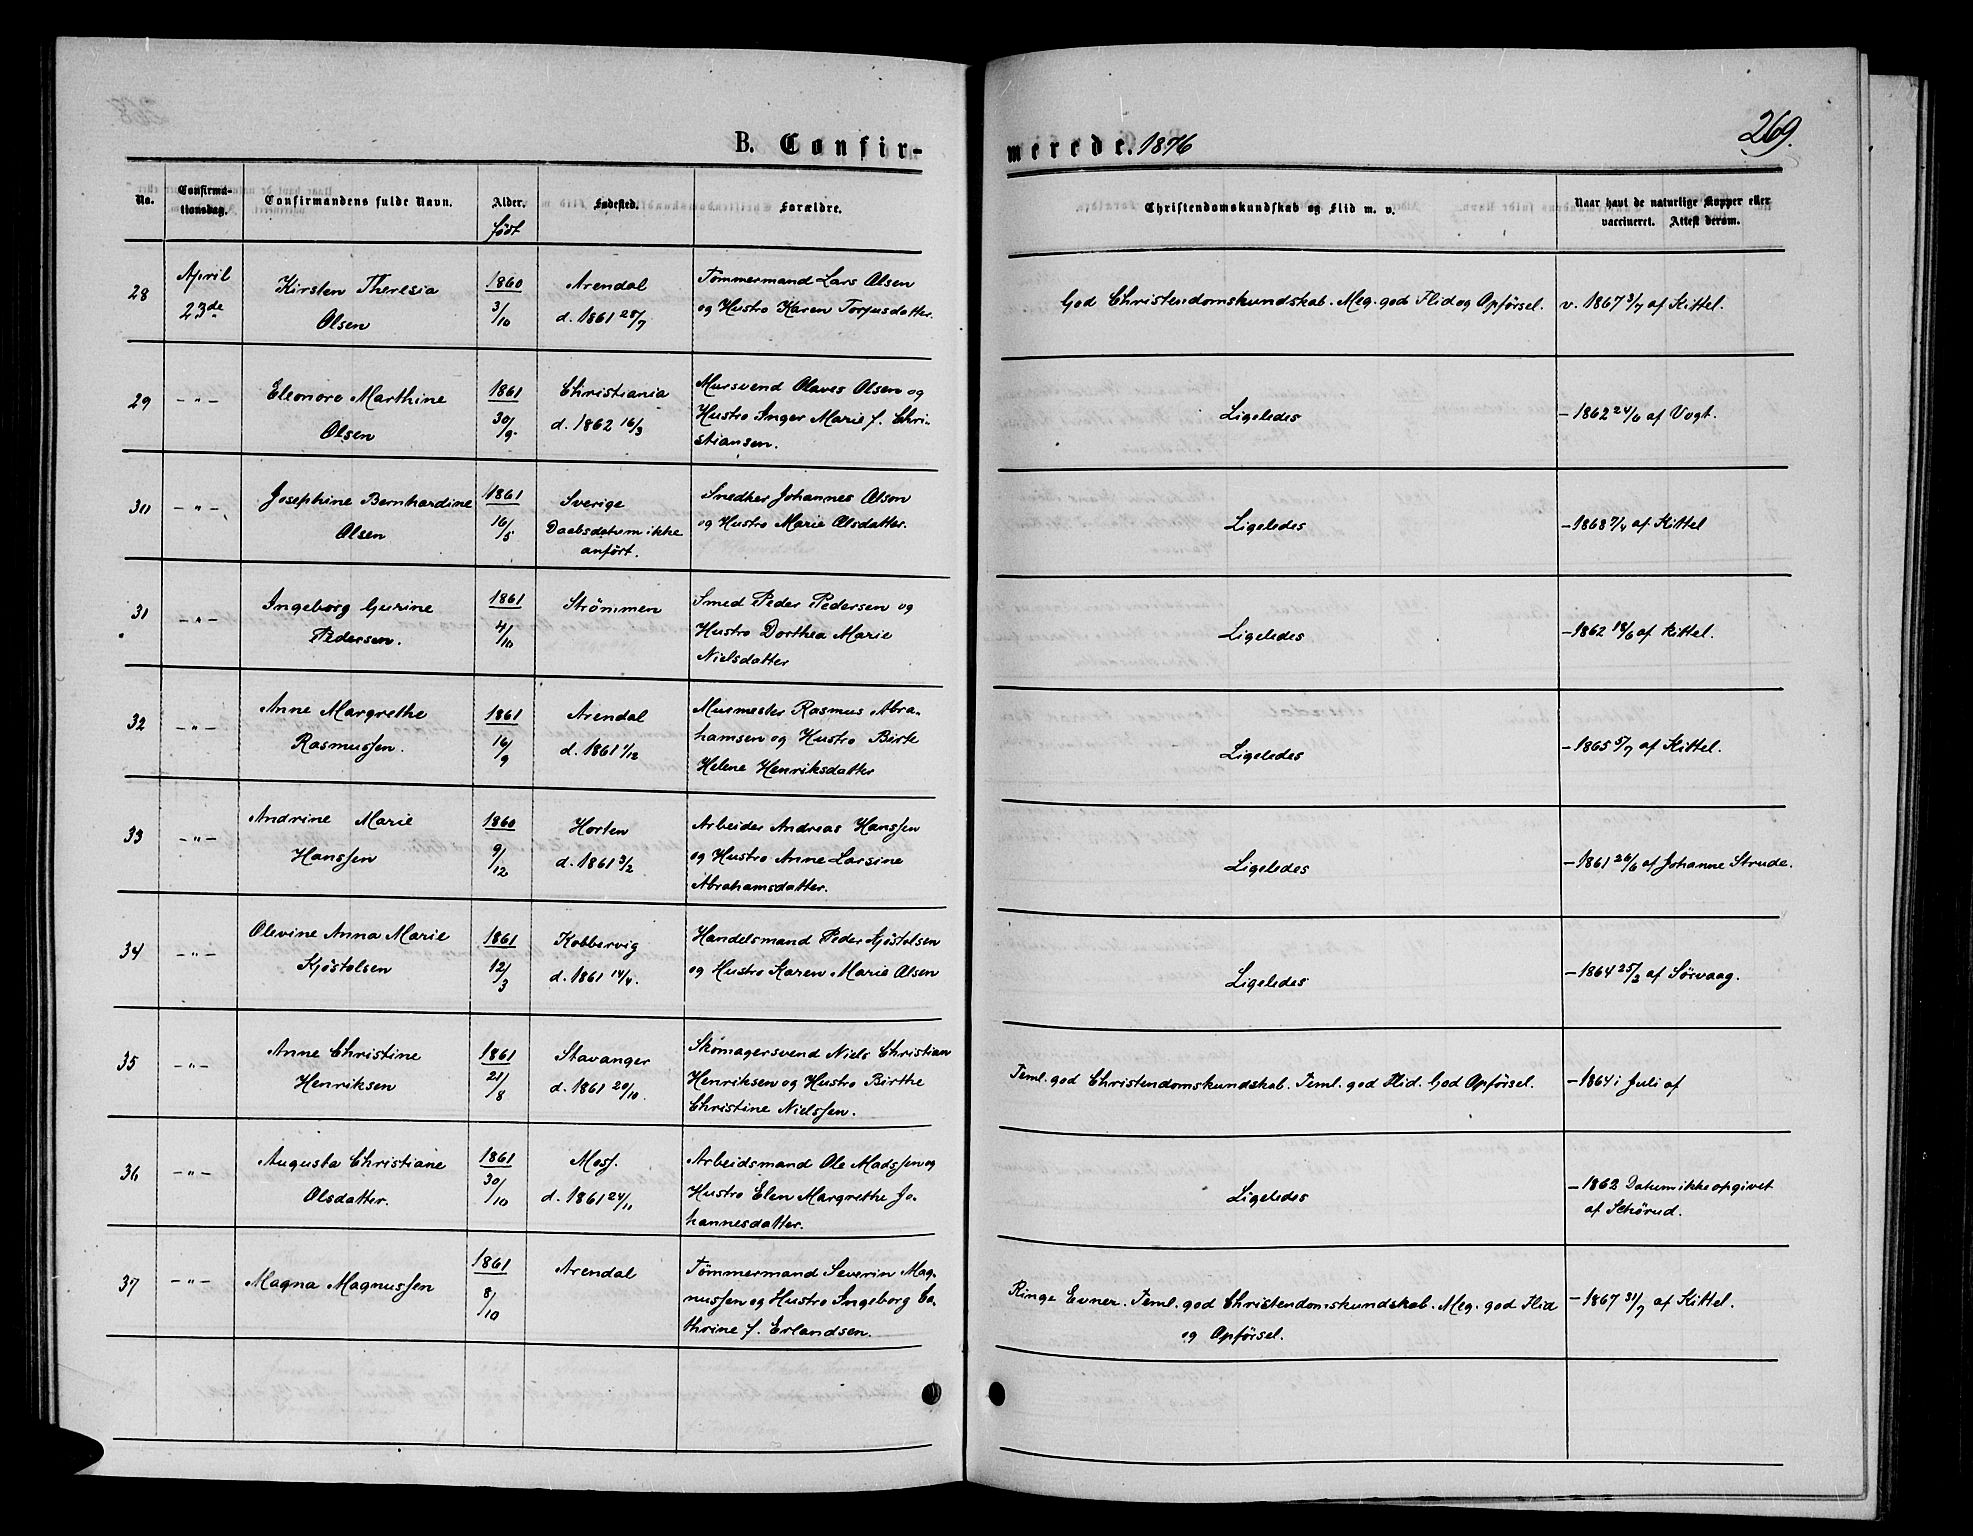 B. Confirmerede. 1876
269.
No.
Confirmationsdag.
Confirmandens fulde Navn.
Alder.
født
Fødested.
Forældre.
Christendomskundskab og Flid m. v.
Naar havt de naturlige Kopper eller
vaccineret. Attest derom.
28
April
23de
Kirsten Theresia
Olsen
1860
3/10
Arendal
d. 1861 28/7
Tømmermand Lars Olsen
og Hustro Karen Torjusdatter.
God Christendomskundskab. Meg. god Flid og Opførsel.
v. 1867 3/7 af Kittel.
29
-"-
Eleonore Marthine
Olsen
1861
30/9.
Christiania
d. 1862 16/3
Mursvend Olaves Olsen og
Hustro Inger Marie f. Chri-
stiansen.
Ligeledes
- 1862 24/6 af Vogt.
30
-"-
Josephine Bernhardine
Olsen
1861
16/5
Sverige
Daabsdatum ikke
anført.
Snedker Johannes Olsen
og Hustro Marie Olsdatter.
Ligeledes
- 1868 7/4 af Kittel
31
-"-
Ingeborg Gurine
Pedersen.
1861
4/10
Strømmen
Smed Peder Pedersen og
Hustro Dorthea Marie
Nielsdatter
Ligeledes
- 1862 18/6 af Kittel.
32
-"-
Anne Margrethe
Rasmussen.
1861
16/9
Arendal
d. 1861 1/12
Murmester Rasmus Abra-
hamsen og Hustro Birte
Helene Henriksdatter
Ligeledes
- 1865 5/7 af Kittel.
33
-"-
Andrine Marie
Hanssen
1860
9/12
Horten
d. 1861 3/2
Arbeider Andreas Hanssen
og Hustro Anne Larsine
Abrahamsdatter.
Ligeledes
- 1861 26/6 af Johanne Strude.
34
-"-
Olevine Anna Marie
Kjøstolsen
1861
12/3
Kobbervig
d. 1861 14/4.
Handelsmand Peder Kjøstolsen
og Hustro Karen Marie Olsen
Ligeledes
- 1864 25/2 af Sørvaag.
35
-"-
Anne Christine
Henriksen
1861
21/8
Stavanger
d. 1861 20/10.
Skomagersvend Niels Christian
Henriksen og Hustro Birthe
Christine Nielssen.
Teml. god Christendomskundskab. Teml. god Flid. God Opførsel.
- 1864 i Juli af
36
-"-
Augusta Christiane
Olsdatter.
1861
30/10
Moss.
d. 1861 24/11
Arbeidsmand Ole Madssen og
Hustro Elen Margrethe Jo-
hannesdatter.
Ligeledes
- 1862 Datum ikke opgivet
af Schørud.
37
-"-
Magna Magnussen
1861
8/10
Arendal
Tømmermand Severin Mag-
nussen og Hustro Ingeborg Ca-
thrine f. Erlandsen.
Ringe Evner. Teml. god Christendomskundskab. Meg. god Flid
og Opførsel.
- 1867 31/7 af Kittel.